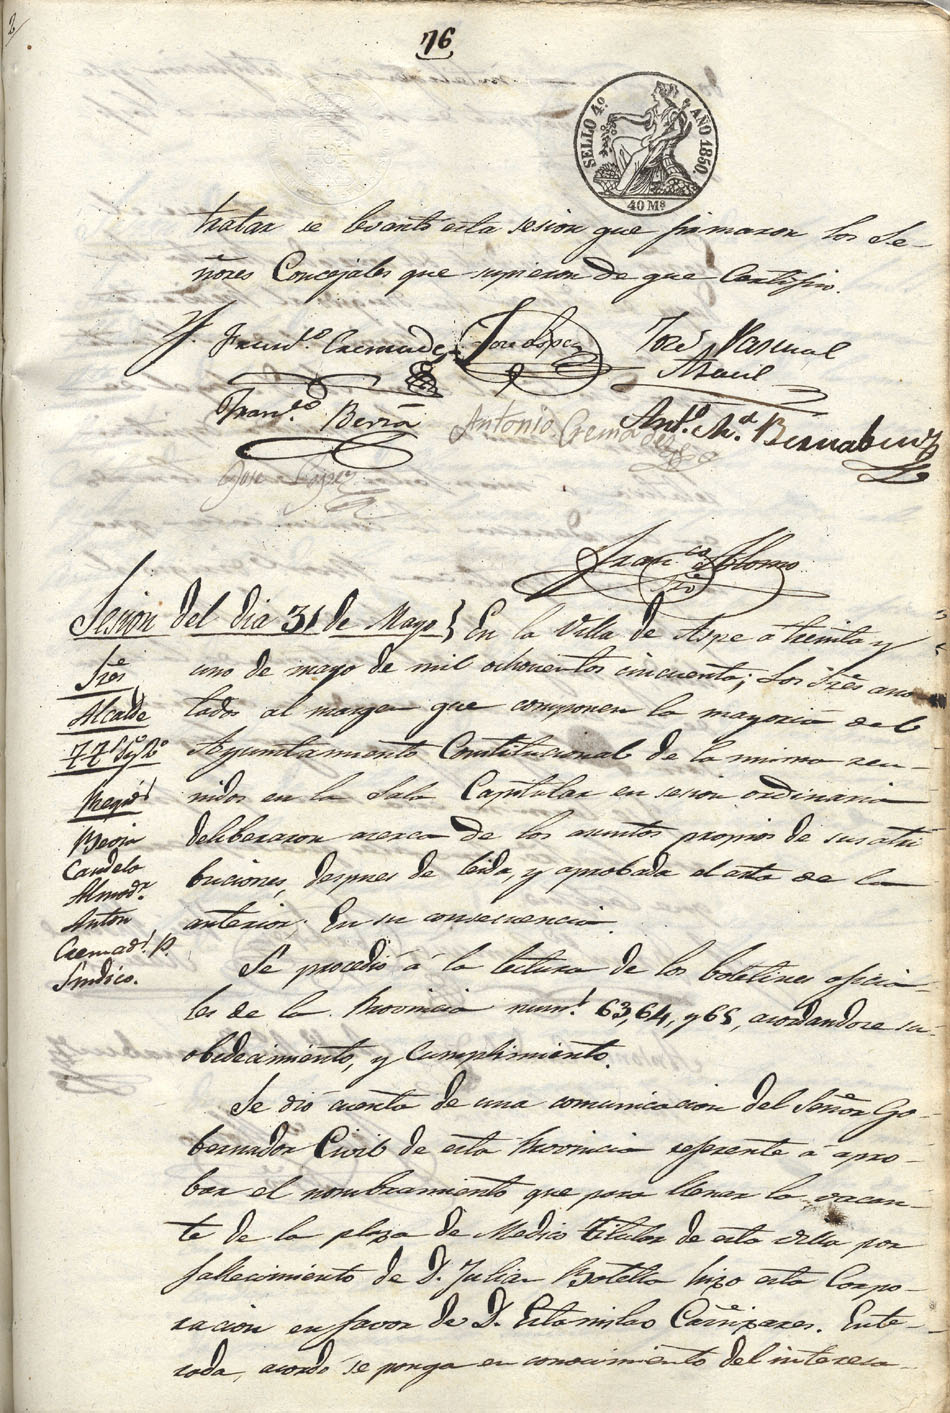 76
SELLO 4º AÑO 1850.
40 Ms
tratar se levantó esta sesion que firmaron los Se-
ñores Concejales que supieron de que Certifico.
Franco. Cremades Jose Lopez José Pascual
Franco. Berná Antonio Cremades Anto. Ma. Bernabeu
Jose Lopez
Franco. Alonso
Srio
Sesion del dia 31 de Mayo} En la Villa de Aspe a treinta y
Sres uno de mayo de mil ochocientos cincuenta; Los Sres ano-
Alcalde tados al margen que componen la mayoria del
Ayuntamiento Constitucional de la misma reu-
Regids nidos en la Sala Capitular en sesion ordinaria
deliberaron acerca de los asuntos propios de sus atri
Candela
Almodr. buciones, despues de leida, y aprobada el acta de la
Anton anterior. En su consecuencia
Cremads. P.
Sindico.
Se procedió á la lectura de los boletines oficia-
les de la Provincia nums. 63, 64, y 65, acordandose su
obedecimiento, y cumplimiento.
Se dió cuenta de una comunicacion del Señor Go-
bernador Civil de esta Provincia referente á apro-
bar el nombramiento que para llenar la vacan-
te de la plaza de Medico titular de esta villa por
fallecimiento de D. Julian Botella hizo esta Corpo-
racion en favor de D. Estanislao Cañizares. Ente-
rada, acordó se ponga en conocimiento del interesa-